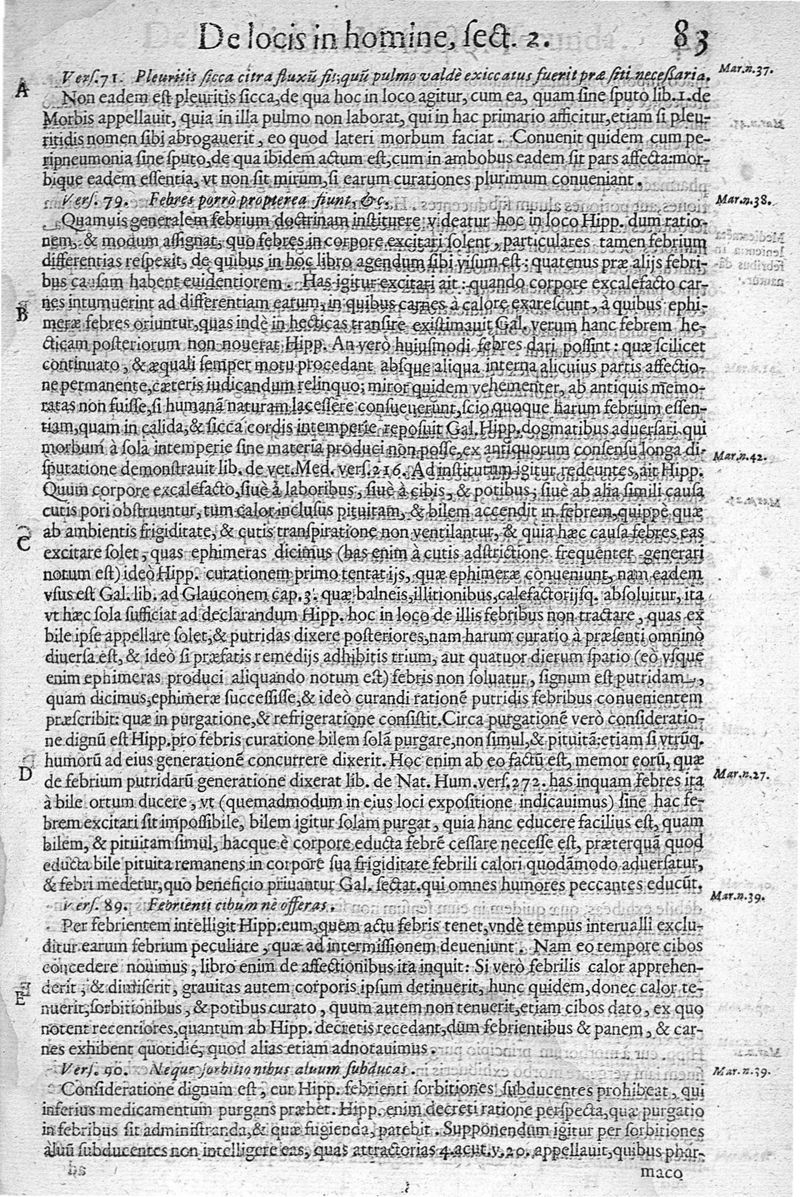 De locis in homine, sect. 2. 83
Vers. 71. Pleuritis sicca citra fluxū fit; quū pulmo valdè exiccatus fuerit præ siti necessaria. Mar.n.37.
A
Non eadem est pleuritis sicca, de qua hoc in loco agitur, cum ea, quam sine sputo lib. 1. de
Morbis appellauit, quia in illa pulmo non laborat, qui in hac primario afficitur, etiam si pleu-
ritidis nomen sibi abrogauerit, eo quod lateri morbum faciat. Conuenit quidem cum pe-
ripneumonia sine sputo, de qua ibidem actum est, cum in ambobus eadem sit pars affecta: mor-
bique eadem essentia, vt non sit mirum, si earum curationes plurimum conueniant.
Vers. 79. Febres porrò propterea fiunt, &c. Mar.n.38.
Quamuis generalem febrium doctrinam instituere videatur hoc in loco Hipp. dum ratio-
nem, & modum assignat, quo febres in corpore excitari solent, particulares tamen febrium
differentias respexit, de quibus in hoc libro agendum sibi visum est: quatenus præ alijs febri-
bus causam habent euidentiorem. Has igitur excitari ait: quando corpore excalefacto car-
nes intumuerint ad differentiam earum, in quibus carnes à calore exarescunt, à quibus ephi-
B
meræ febres oriuntur, quas indè in hecticas transire existimauit Gal. verum hanc febrem he-
cticam posteriorum non nouerat Hipp. An verò huiusmodi febres dari possint: quæ scilicet
continuato, & æquali semper motu procedant absque aliqua interna alicuius partis affectio-
ne permanente, cæteris iudicandum relinquo; miror quidem vehementer, ab antiquis memo-
ratas non fuisse, si humanā naturam lacessere consueuerunt, scio quoque harum febrium essen-
tiam, quam in calida, & sicca cordis intemperie reposuit Gal. Hipp. dogmatibus aduersari. qui
morbum à sola intemperie sine materia produci non posse, ex antiquorum consensu longa di-
sputatione demonstrauit lib. de vet. Med. vers. 216. Ad institutam igitur redeuntes, ait Hipp. Mar.n.42.
Quùm corpore excalefacto, siuè à laboribus, siuè à cibis, & potibus, siuè ab alia simili causa
cutis pori obstruuntur, tum calor inclusus pituitam, & bilem accendit in febrem, quippè quæ
ab ambientis frigiditate, & cutis transpiratione non ventilantur, & quia hæc causa febres eas
C
excitare solet, quas ephimeras dicimus (has enim à cutis adstrictione frequenter generari
notum est) ideò Hipp. curationem primo tentat ijs, quæ ephimeræ conueniunt, nam eadem
vsus est Gal. lib. ad Glauconem cap. 3. quæ balneis, illitionibus, calefactorijsq. absoluitur, ita
vt hæc sola sufficiat ad declarandum Hipp. hoc in loco de illis febribus non tractare, quas ex
bile ipse appellare solet, & putridas dixere posteriores, nam harum curatio à præsenti omnino
diuersa est, & ideò si præfatis remedijs adhibitis trium, aut quatuor dierum spatio (eò vsque
enim ephimeras produci aliquando notum est) febris non soluatur, signum est putridam,
quam dicimus, ephimeræ successisse, & ideò curandi rationē putridis febribus conuenientem
præscribit: quæ in purgatione, & refrigeratione consistit. Circa purgationē verò consideratio-
ne dignū est Hipp. pro febris curatione bilem solā purgare, non simul, & pituitā: etiam si vtrūq.
humorū ad eius generationē concurrere dixerit. Hoc enim ab eo factū est, memor eorū, quæ
D
de febrium putridarū generatione dixerat lib. de Nat. Hum. vers. 272. has inquam febres ita Mar.n.27.
à bile ortum ducere, vt (quemadmodum in eius loci expositione indicauimus) sine hac fe-
brem excitari sit impossibile, bilem igitur solam purgat, quia hanc educere facilius est, quam
bilem, & pituitam simul, hacque è corpore educta febrē cessare necesse est, præterquā quod
educta bile pituita remanens in corpore sua frigiditate febrili calori quodāmodo aduersatur,
& febri medetur, quo beneficio priuantur Gal. sectat. qui omnes humores peccantes educūt.
Vers. 89. Febrienti cibum nè offeras. Mar.n.39.
Per febrientem intelligit Hipp. eum, quem actu febris tenet, vndè tempus interualli exclu-
ditur earum febrium peculiare, quæ ad intermissionem deueniunt. Nam eo tempore cibos
concedere nouimus, libro enim de affectionibus ita inquit: Si verò febrilis calor apprehen-
E
derit, & dimiserit, grauitas autem corporis ipsum detinuerit, hunc quidem, donec calor te-
nuerit, sorbitionibus, & potibus curato, quum autem non tenuerit, etiam cibos dato, ex quo
notent recentiores, quantum ab Hipp. decretis recedant, dùm febrientibus & panem, & car-
nes exhibent quotidiè, quod alias etiam adnotauimus.
Vers. 90. Neque sorbitionibus aluum subducas. Mar.n.39.
Consideratione dignum est, cur Hipp. febrienti sorbitiones subducentes prohibeat, qui
inferius medicamentum purgans præbet. Hipp. enim decreti ratione perspecta, quæ purgatio
in febribus sit administranda, & quæ fugienda, patebit. Supponendum igitur per sorbitiones
aluū subducentes non intelligere eas, quas attractorias 4. acut. v. 20. appellauit, quibus phar-
maco